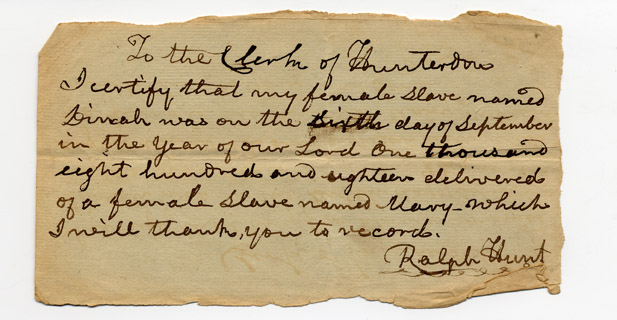 To the Clerk of Hunterdon
I certify that my female slave named
Dinah was on the sixth day of September
in the Year of our Lord One thousand
eight hundred and eighteen delivered
of a female slave named Mary which
I will thank you to record.
Ralph Hunt